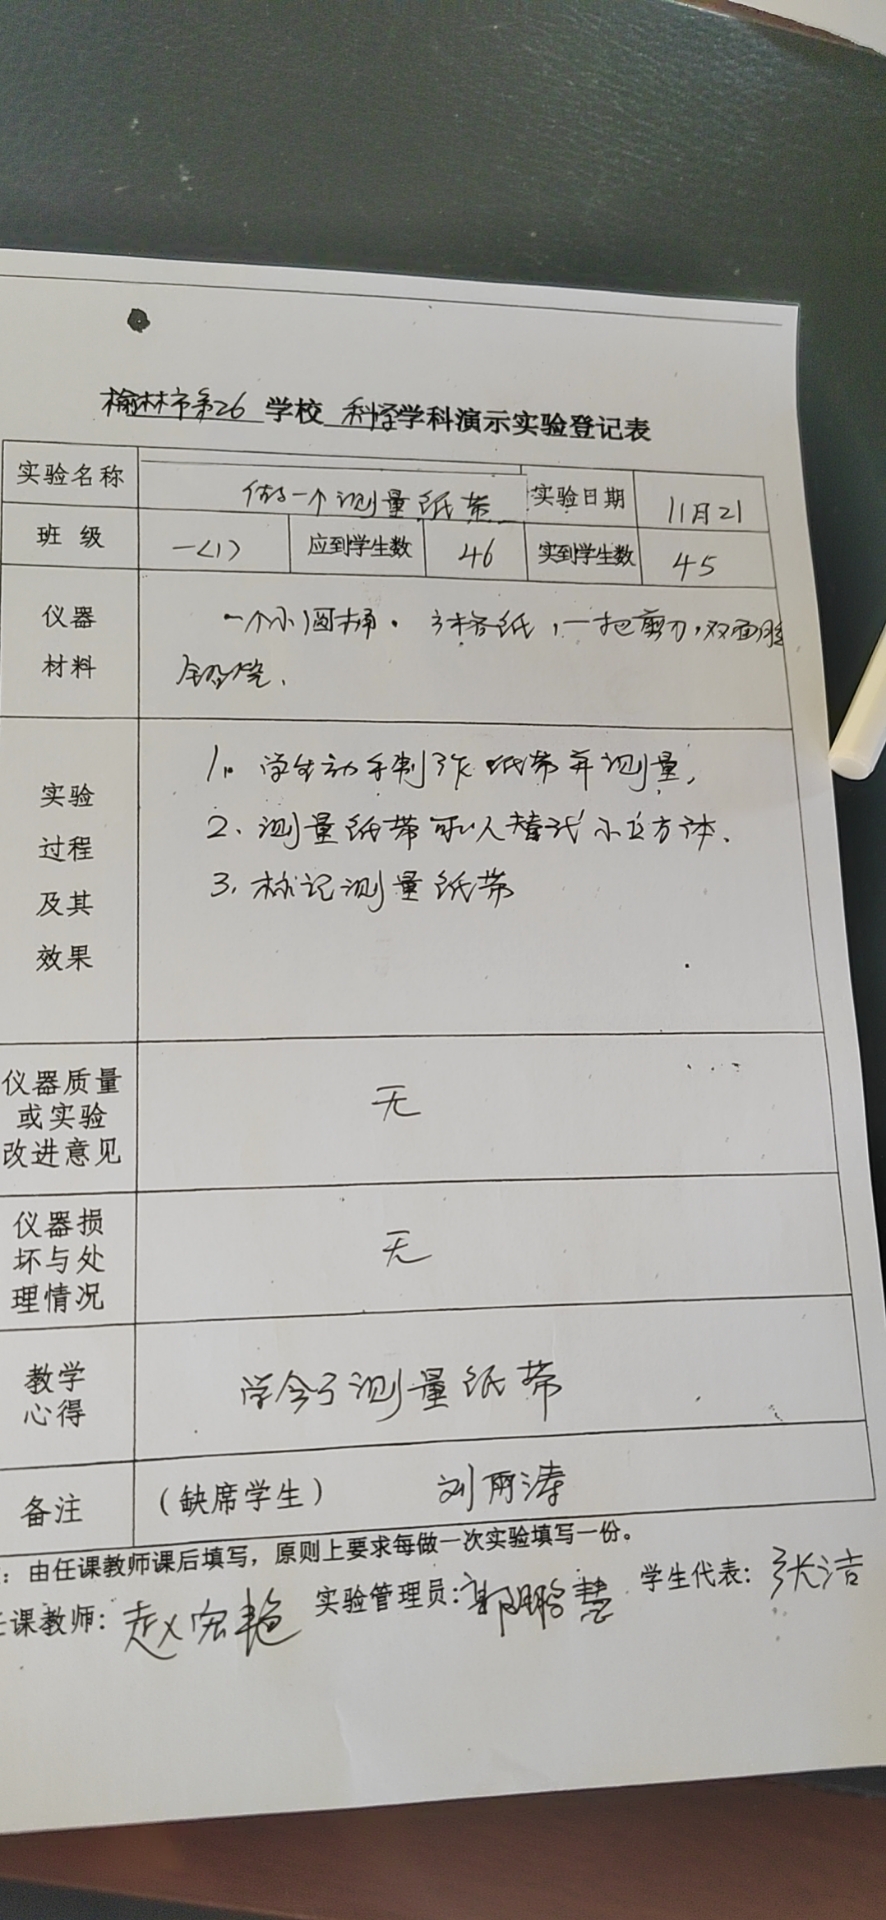 榆林市第26 学校 科学学科演示实验登记表
实验名称 做一个测量纸带 实验日期 11月21
班 级 一(1) 应到学生数 46 实到学生数 45
仪器 材料 一个小圆桶。 方格纸，一把剪刀，双面胶
铅笔、
实验 过程 及其 效果 1. 学生动手制作纸带并测量，
2、测量纸带可以替代小立方体、
3、标记测量纸带
仪器质量 或实验 改进意见 无
仪器损 坏与处 理情况 无
教学 心得 学会了测量纸带
备注 （缺席学生） 刘雨涛
：由任课教师课后填写，原则上要求每做一次实验填写一份。
任课教师：赵宏艳 实验管理员：郭鹏慧 学生代表：张洁